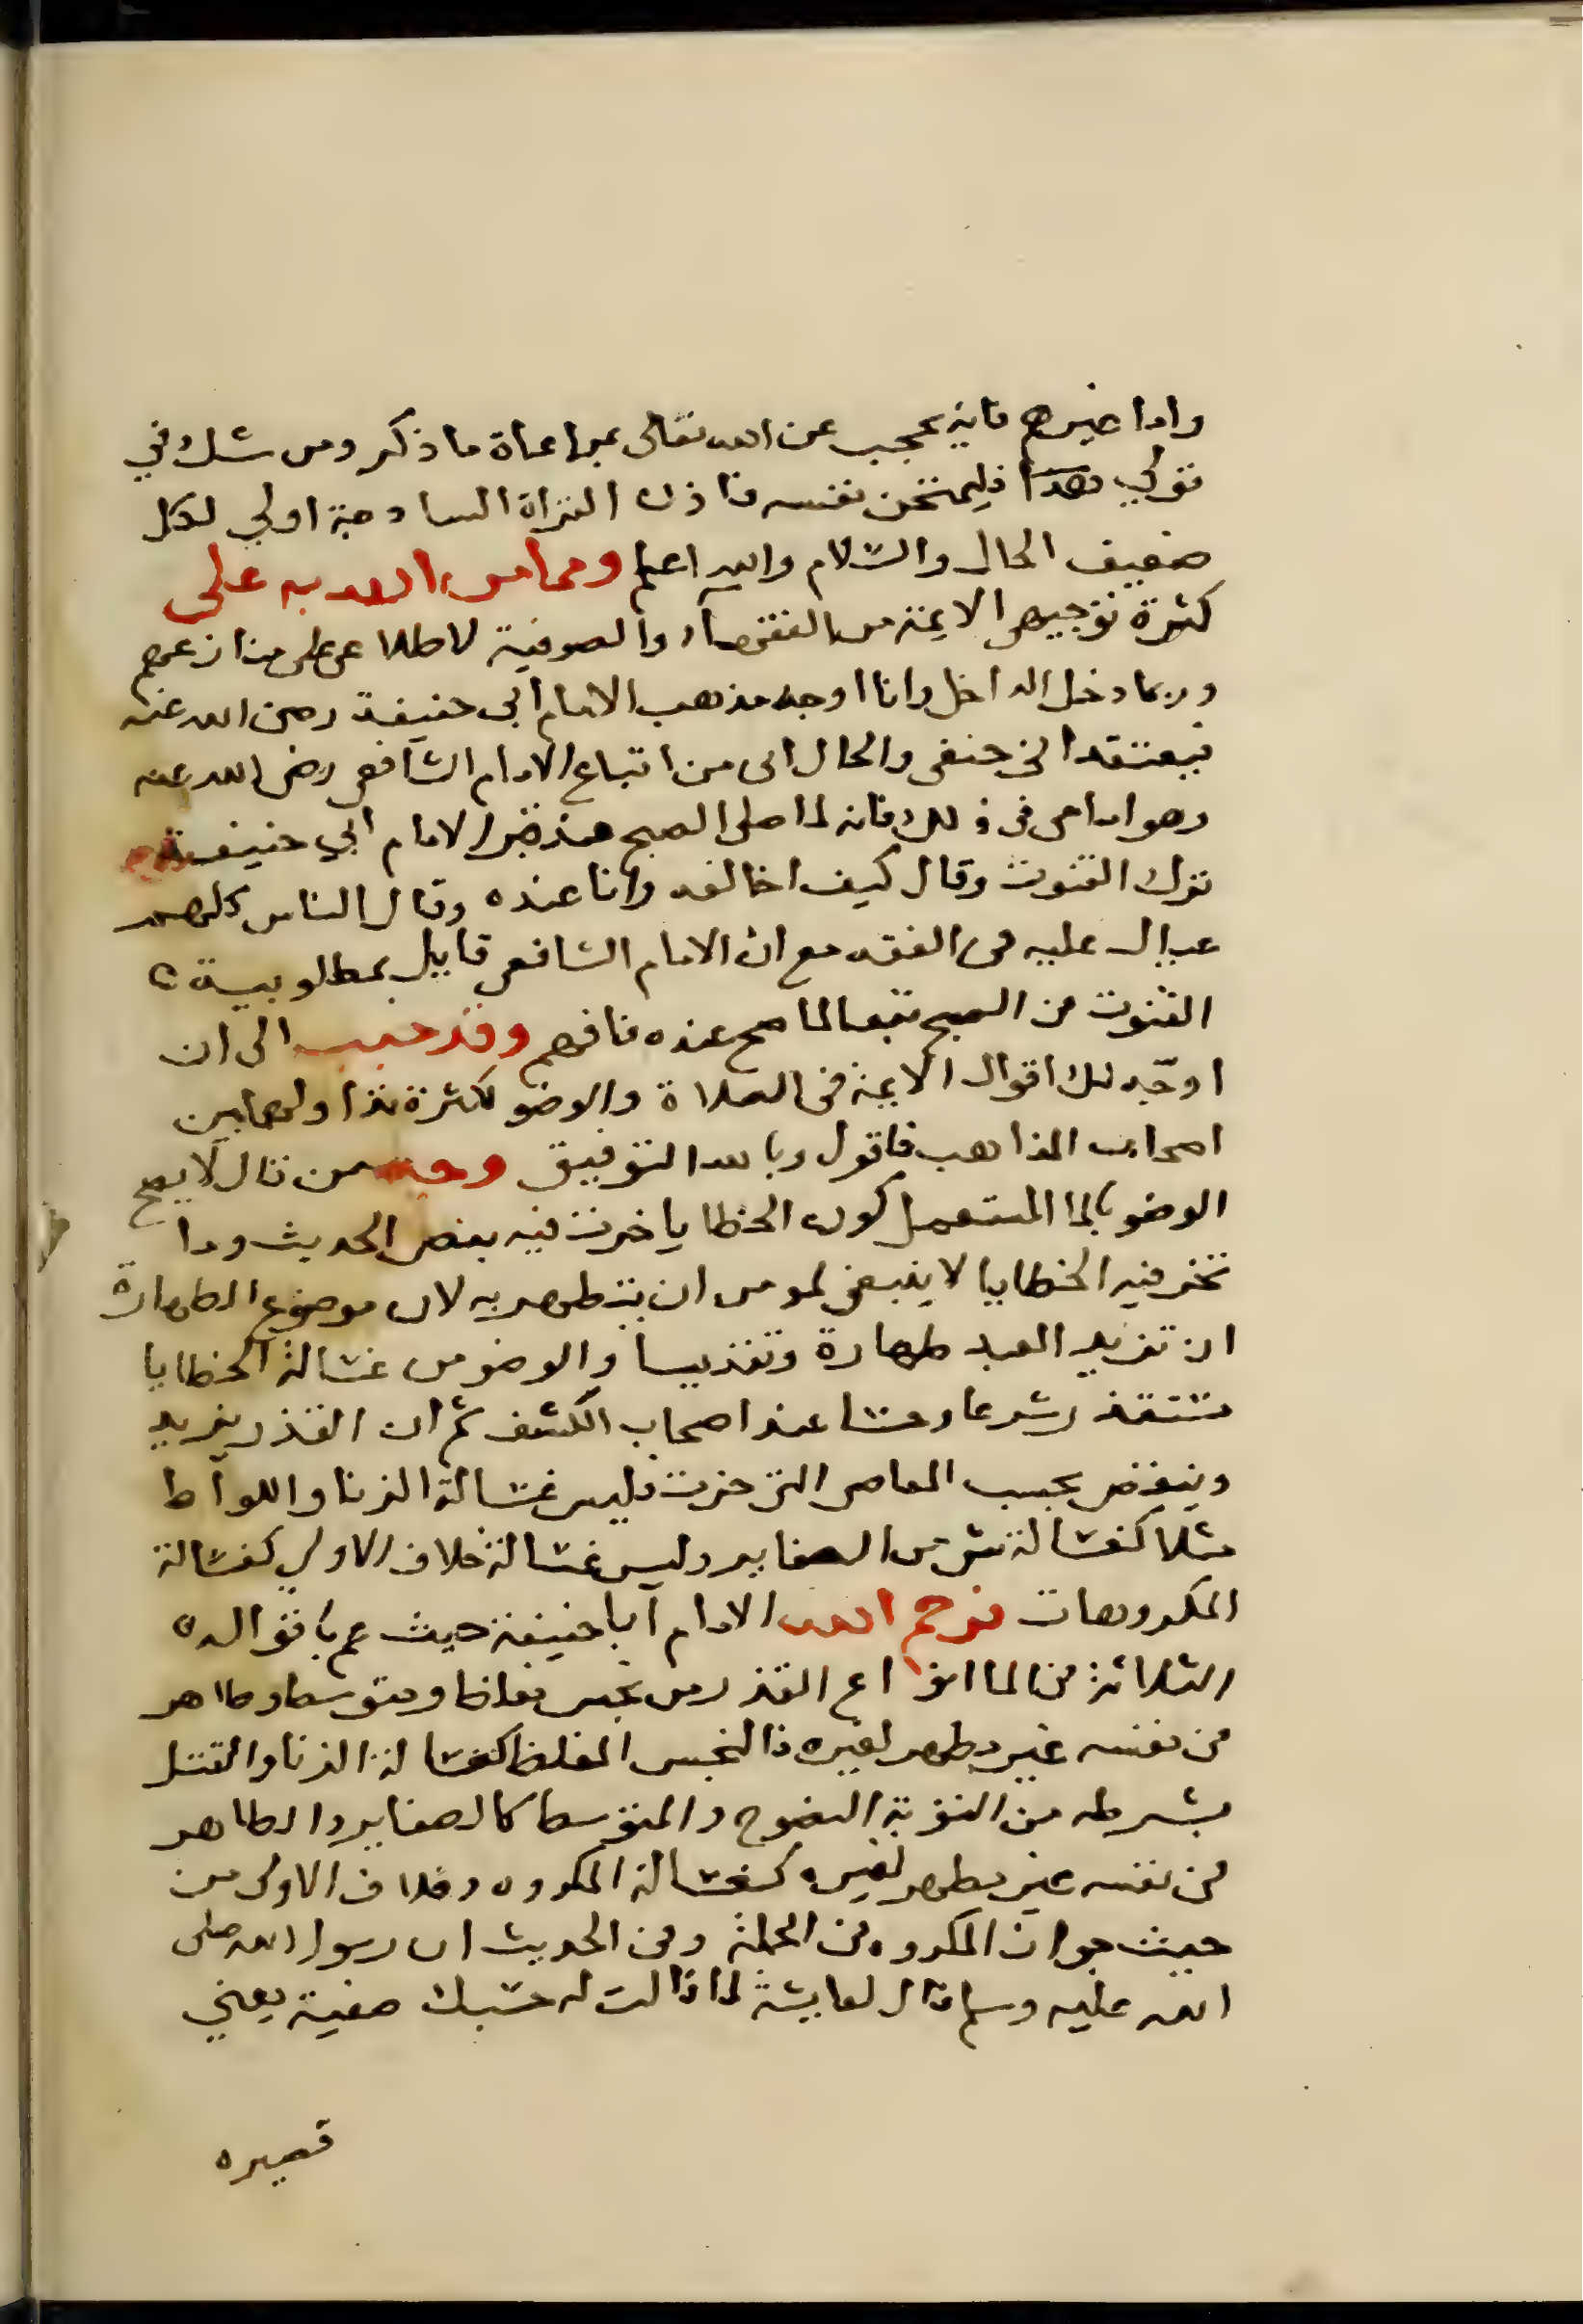 واما غيرهم فانه يحجب عن الله تعالى بمراعاة ما ذكر ومن شك في
قولي هذا فليمتحن نفسه فاذن القراة الساذجة اولي لكل
ضعيف الحال والسلام والله اعلم ومما من الله به علي
كثرة توجيهي الايمة من الفقهآء والصوفية لاطلاعي على منازعهم
وربما دخل الداخل وانا اوجه مذهب الامام ابي حنيفة رضي الله عنه
فيعتقد اني حنفي والحال اني من اتباع الامام الشافعي رضي الله عنه
وهو امامي في ذلك فانه لما صلى الصبح عند قبر الامام ابي حنيفة
ترك القنوت وقال كيف اخالفه وانا عنده وقال الناس كلهم
عيال عليه في الفقه مع ان الامام الشافعي قايل بمطلوبية
القنوت في الصبح تبعا لما صح عنده فافهم وقد حبب الى ان
اوجّه لك اقوال الايمة في الصلاة والوضو لكثرة تداولها بين
اصحاب المذاهب فاقول وبالله التوفيق وجه من قال لا يصح
الوضو بالما المستعمل كون الخطايا خرت فيه بنص الحديث وما
تخر فيه الخطايا لا ينبغي لمومن ان يتطهر به لان موضوع الطهارة
ان تزيد العبد طهارة وتقديسا والوضو من غسالة الخطايا
مستقذر شرعا وحسا عند اصحاب الكشف ثم ان القذر يزيد
وينقص بحسب المعاصي التي خرت فليس غسالة الزنا واللواط
مثلا كغسالة شي من الصغاير وليس غسالة خلاف الاولى كغسالة
المكروهات فرحم الله الامام أبا حنيفة حيث عم باقواله
الثلاثة في الما انواع القذر من نجس مغلظ ومتوسط وطاهر
في نفسه غير مطهر لغيره فالنجس المغلظ كغسالة الزنا والقتل
بشرطه من التوبة النصوح والمتوسط كالصغاير والطاهر
في نفسه غير مطهر لغيره كغسالة المكروه وخلاف الاولى من
حيث جواز المكروه في الجملة وفي الحديث ان رسول الله صلى
الله عليه وسلم قال لعايشة لما قالت له حسبك صفية يعني
قصيره